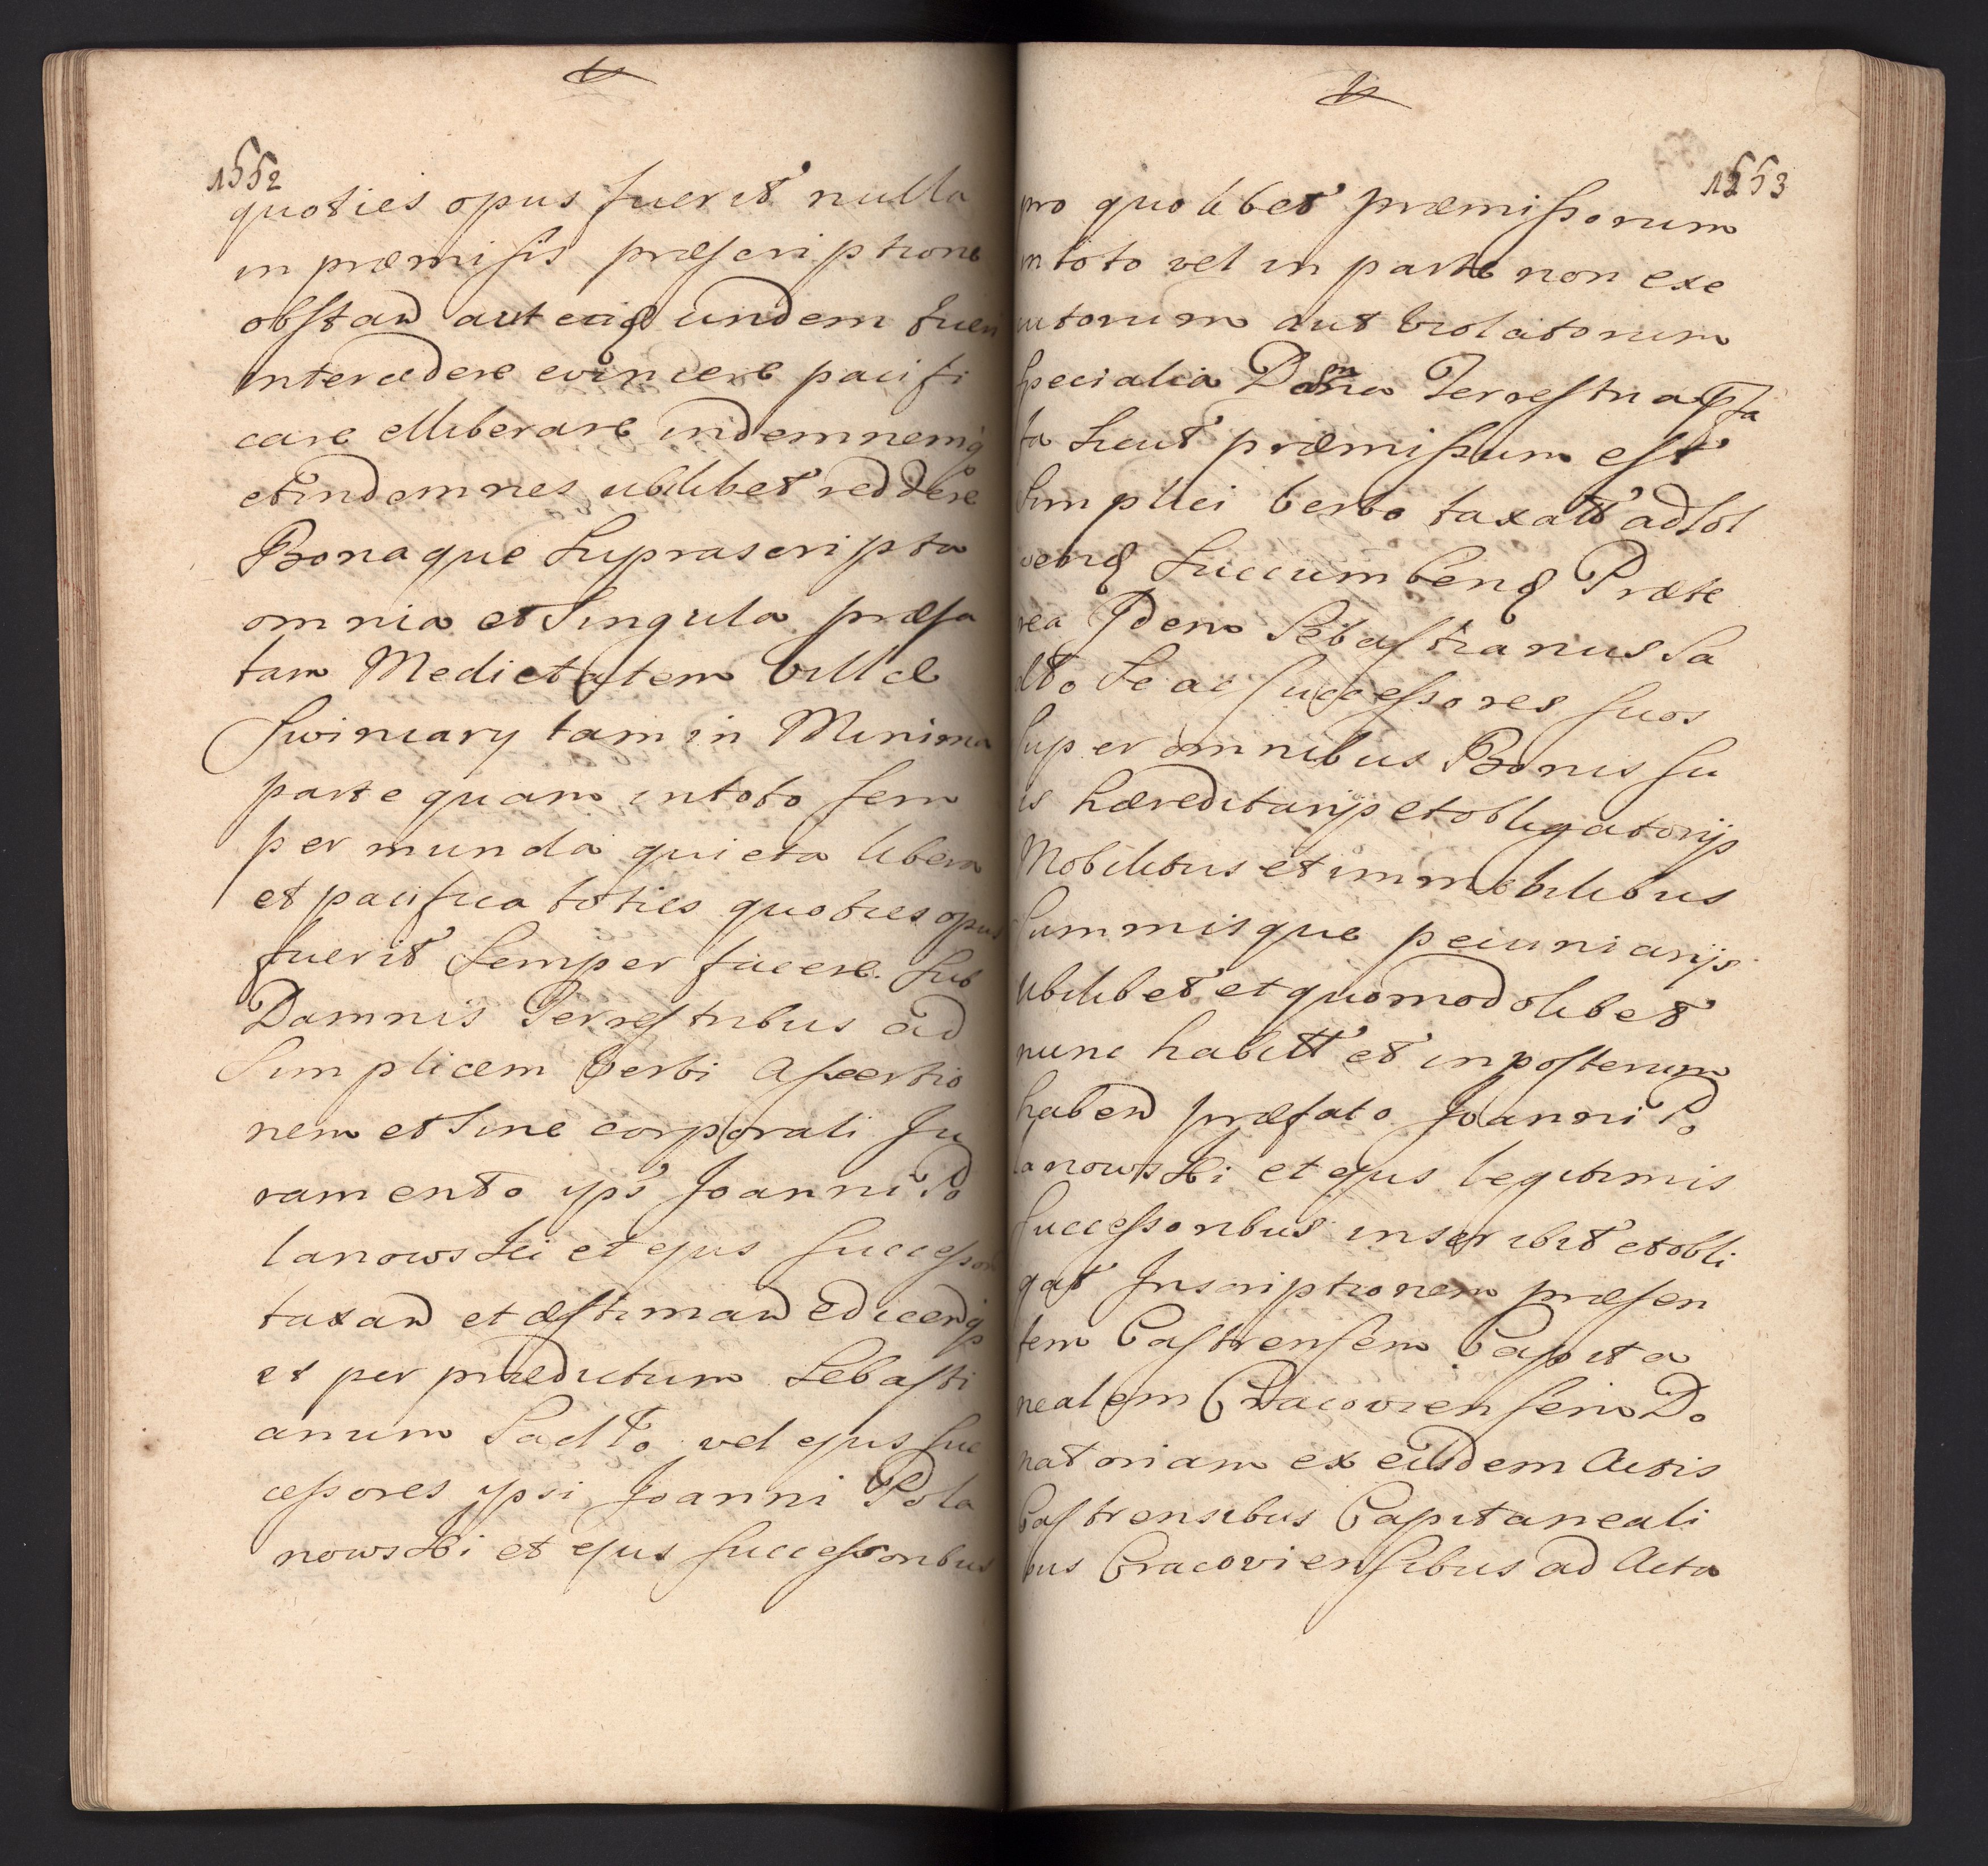 1552
quoties opus fuerit nulla
in præmissis præscriptione
obstan aut eaq undem tueri
intercedere evincere pacifi
care elliberare indemnemq
et indemnes ubilibet reddere
Bonaque suprascripta
omnia et singula præfa
tam Medietatem villæ
Swiniary tam in Minima
parte quam in toto sem
per munda quieta libera
et pacifica toties quoties opus
fuerit semper facere. sub
Damnis Terrestribus ad
simplicem verbi assertio
nem et sine corporali Ju
ramento ips Joanni Po
lanowski et ejus successori
taxan et æstiman edicenq
et per prædictum Sebasti
anum Sadlo vel ejus suc
cessores ipsi Joanni Pola
nowski et ejus successoribus
1553
pro quolibet præmissorum
in toto vel in parte non exe
cutorum aut violatorum
specialia Damna Terrestria
ta sicut præmissum est
simplici verbo taxatt adsol
venq succumbenq Præte
rea Idem Sebastianus Sa
dlo se ac successores suos
super omnibus Bonis su
is hæreditarijs et obligatorijs
Mobilibus et immobilibus
summisque pecuniarijs
ubilibet et quomodolibet
nunc habitt et in posterum
haben præfato Joanni Po
lanowski et ejus legitimis
successoribus inscribit et obli
gat Inscriptionem præsen
tem Castrensem Capita
nealem Cracoviensem Do
natoriam ex eisdem Actis
Castrensibus Capitaneali
bus Cracoviensibus ad Acta